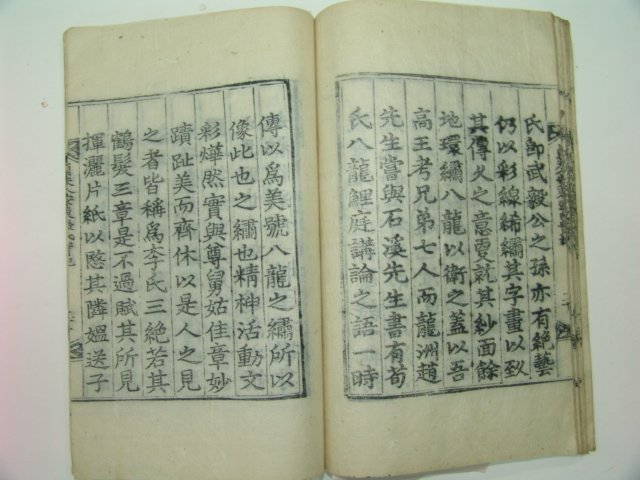 氏卽武毅公之孫亦有絶藝
仍以彩線綉繡其字畫以致
其傳火之意更就其紗面餘
地環繡八龍以衛之蓋以吾
高王考兄弟七人而龍洲趙
先生嘗與石溪先生書有荀
氏八龍鯉庭講論之語一時
傳以爲美號八龍之繡所以
像此也之繡也精神活動文
彩燁然實與尊舅姑佳章妙
蹟趾美而齊休以是人之見
之者皆稱爲李氏三絶若其
鶴髮三章是不過賦其所見
揮灑片紙以愍其隣媼送子